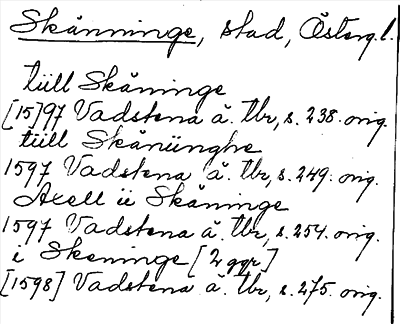 Skänninge, stad, Österg.l.
tiill Skäninge
[15]97 Vadstena ä. tbr, s. 238. orig.
tiill Skäniinghe
1597 Vadstena ä. tbr, s. 249. orig.
Axell ii Skäninge
1597 Vadstena ä. tbr, s. 254. orig.
i Skeninge [2 ggr]
[1598] Vadstena ä. tbr, s. 275. orig.